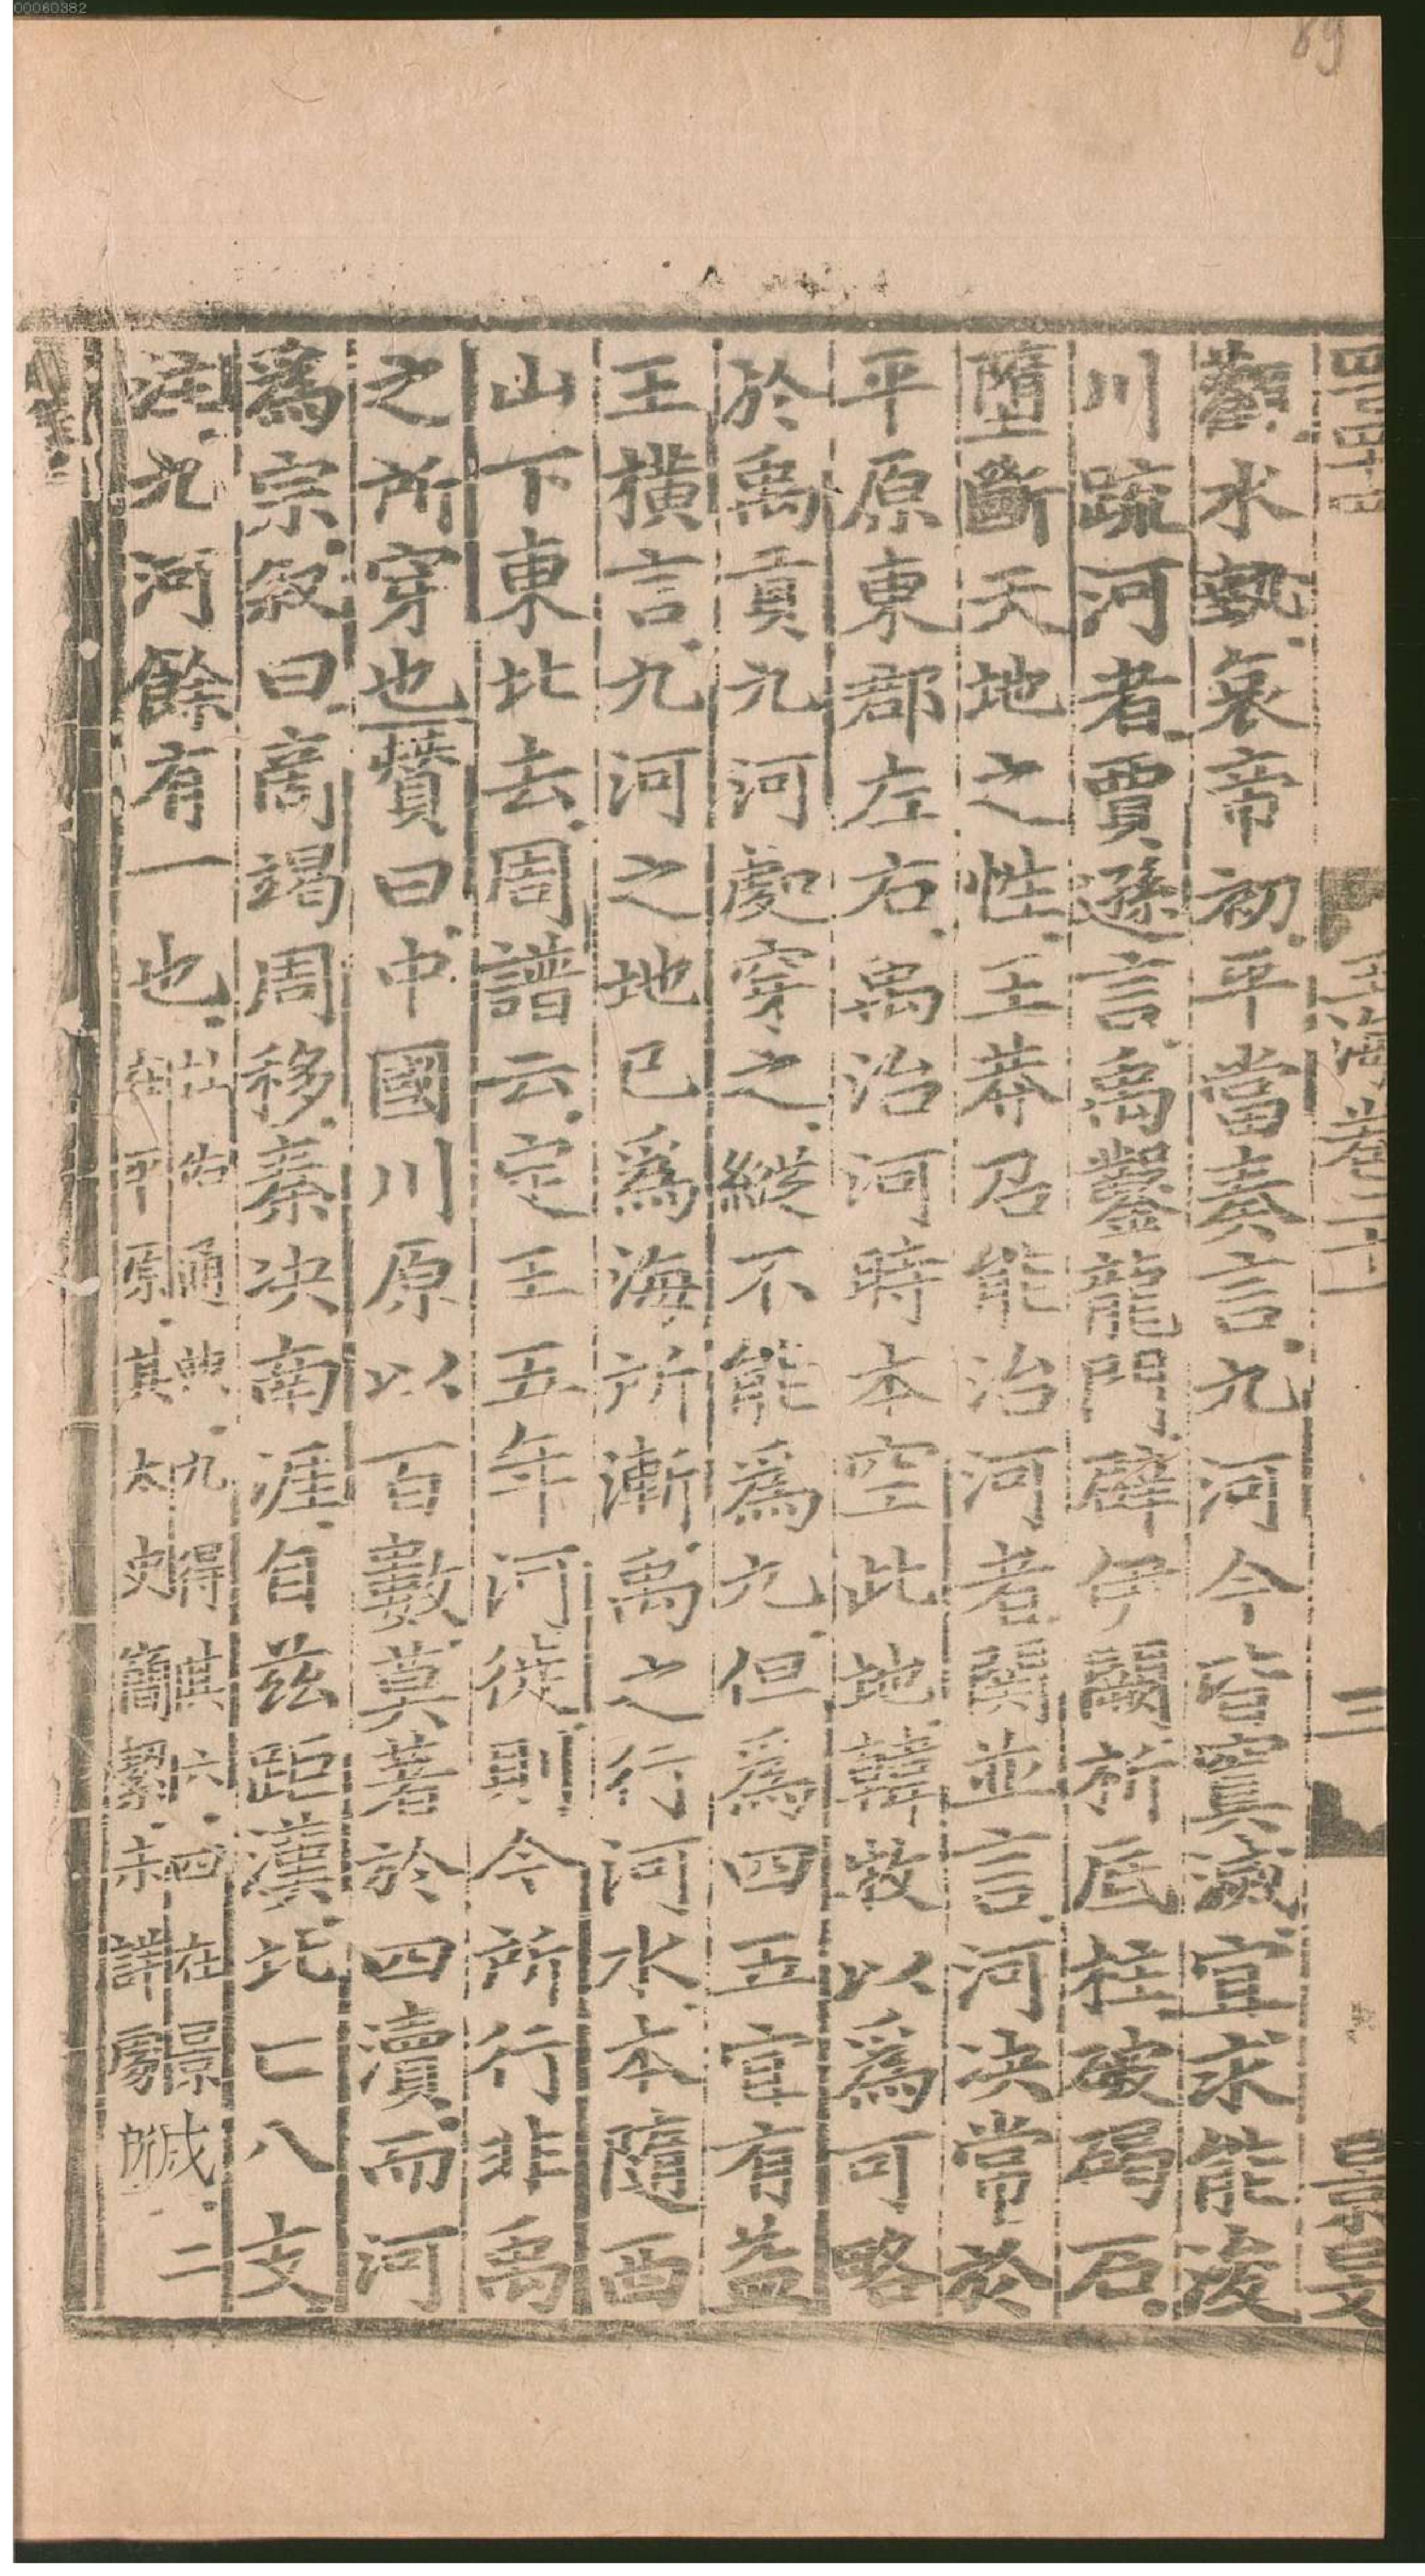 00060382
89
玉海卷二十一
三
觀水埶哀帝初平當奏言九河今皆窴滅宜求能浚
川疏河者賈遜言禹鑿龍門辟伊闕析底柱破碣石
墮斷天地之性王莽召能治河者關並言河決常於
平原東郡左右禹治河時本空此地韓牧以爲可略
於禹貢九河處穿之縱不能爲九但爲四五宜有益
王橫言九河之地已爲海所漸禹之行河水本隨西
山下東北去周譜云定王五年河徙則今所行非禹
之所穿也贊曰中國川原以百數莫著於四瀆而河
爲宗叙曰商竭周移秦決南涯自茲距漢北亡八支
注九河餘有一也杜佑通典九得其六四在景城二
在平原其太史簡絜未詳處所